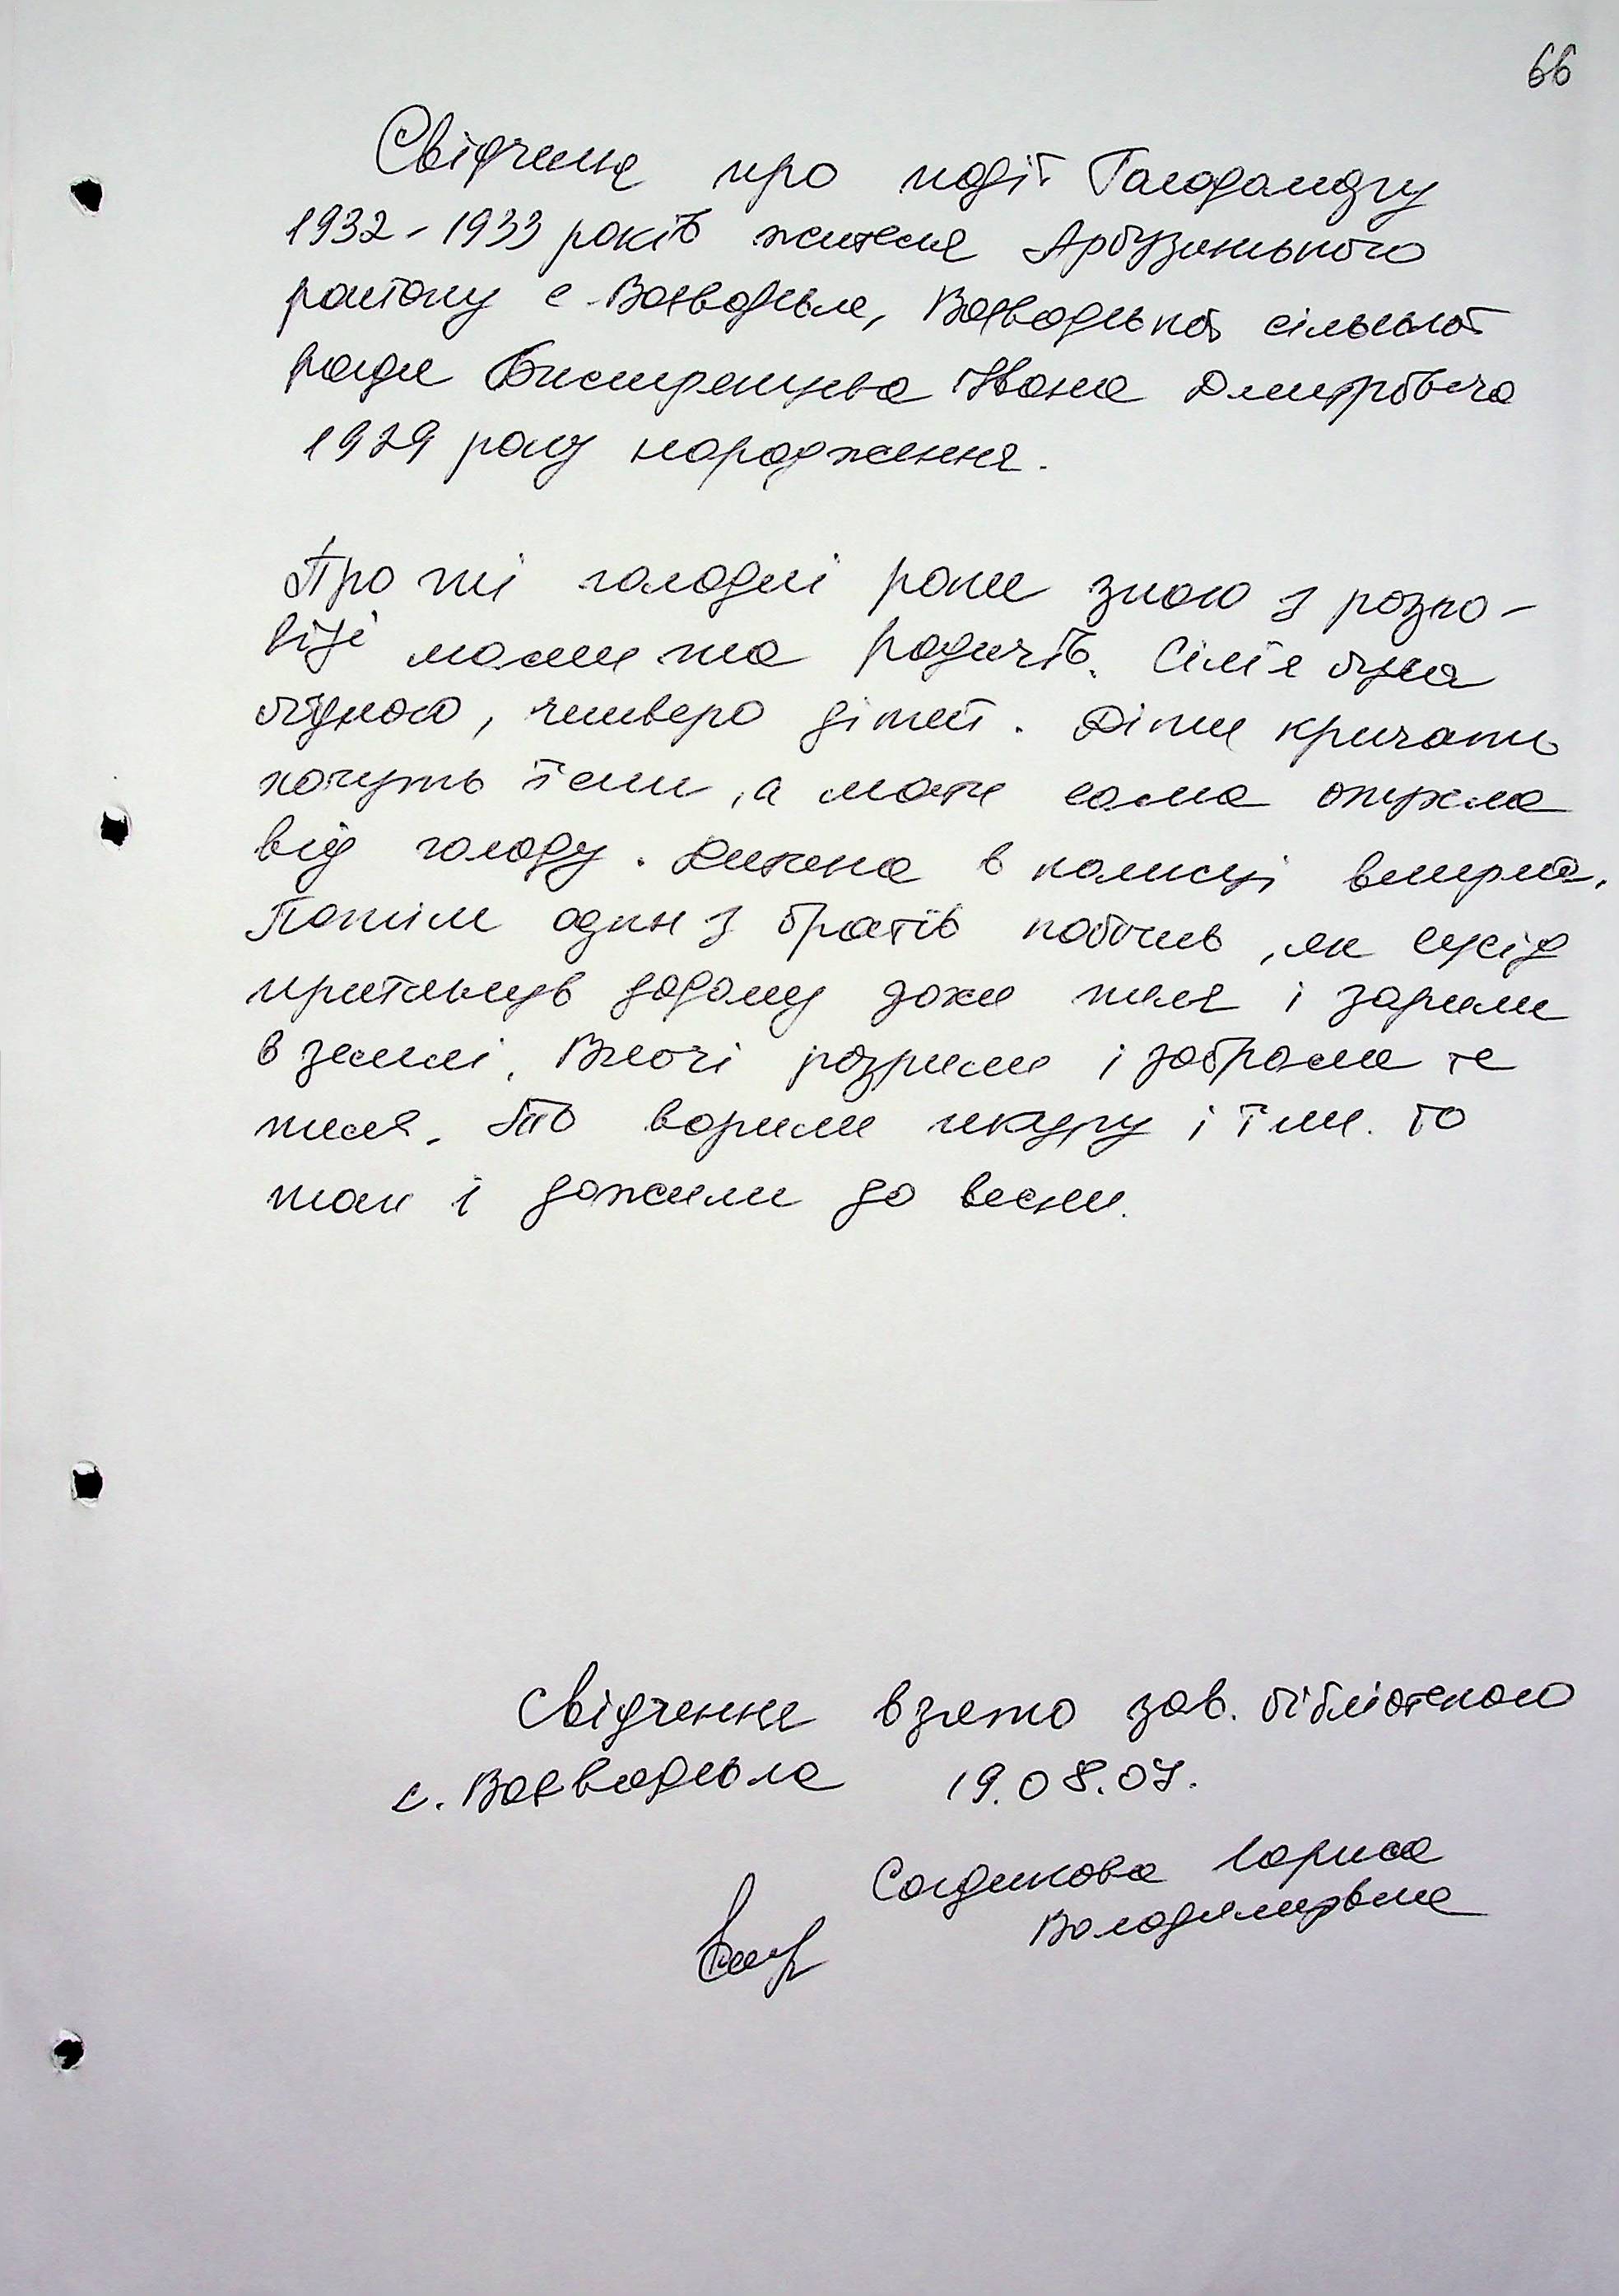 66
Свідчення про події Голодомору
1932-1933 років жителя Арбузинського
району с. Воєводське, Воєводської сільської
ради Бистренцева Івана Дмитровича
1929 року народження.
Про ті голодні роки знаю з розпо-
віді мами та родичів. Сім'я була
бідною, четверо дітей. Діти кричать
хочуть їсти, а мати сама опухла
від голоду. Дитина в колисці вмерла.
Потім один з братів побачив, як сусід
притягнув додому дохле теля і зарили
в землі. Вночі розрили і забрали те
теля. То варили шкуру і їли. То
так і дожили до весни.
Свідчення взято зав. бібліотекою
с. Воєводське 19.08.07.
Садикова Лариса
Володимирівна